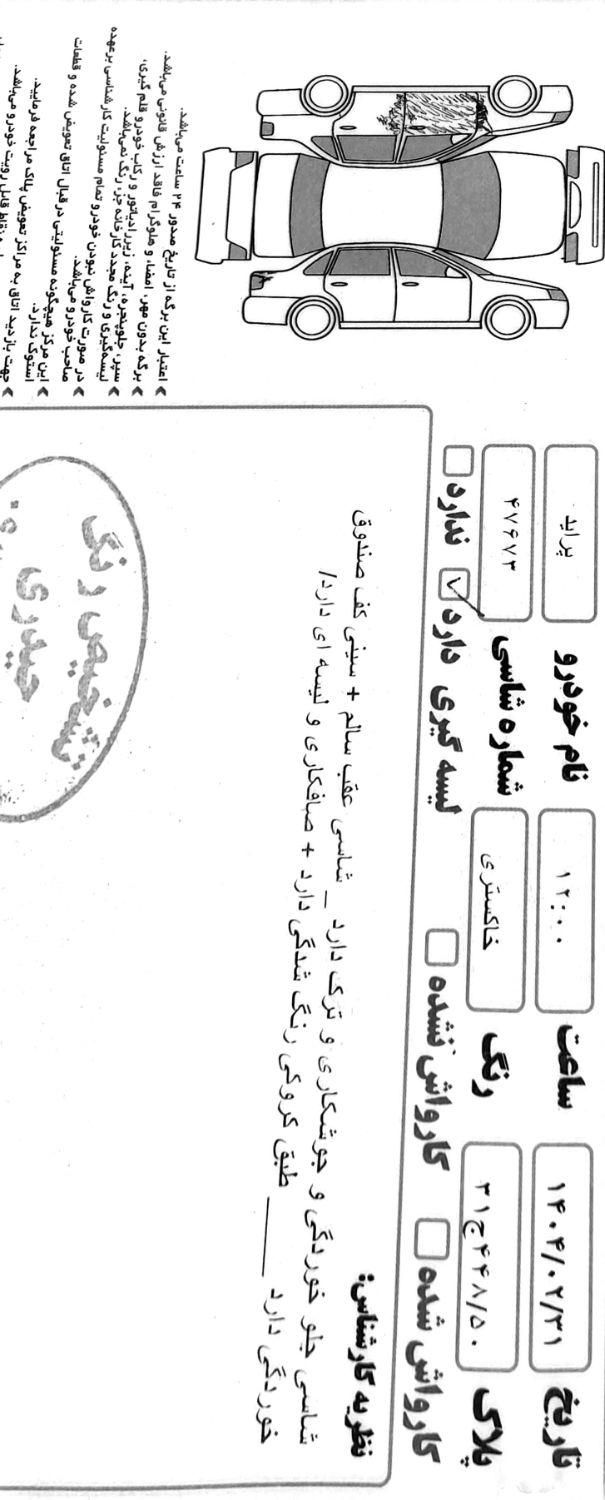 تاریخ ۱۴۰۴/۰۲/۳۱ ساعت ۱۲:۰۰ نام خودرو پراید
پلاک ۳۱ج۴۴۸/۵۰ رنگ خاکستری شماره شاسی ۴۷۶۷۳
کارواش شده کارواش نشده لیسه گیری دارد ندارد
نظریه کارشناس:
شاسی جلو خوردگی و جوشکاری و ترک دارد _ شاسی عقب سالم + سینی کف صندوق
خوردگی دارد ____ طبق کروکی رنگ شدگی دارد + صافکاری و لیسه ای دارد/
تشخیص رنگ
حیدری
اعتبار این برگه از تاریخ صدور ۲۴ ساعت می‌باشد.
برگه بدون مهر، امضاء و هلوگرام فاقد ارزش قانونی می‌باشد.
سپر، جلوپنجره، آینه، زیررادیاتور و رکاب خودرو قلم گیری،
لیسه‌گیری و رنگ مجدد کارخانه جزء رنگ نمی‌باشد.
در صورت کارواش نبودن خودرو تمام مسئولیت کارشناسی برعهده
صاحب خودرو می‌باشد.
این مرکز هیچگونه مسئولیتی در قبال اتاق تعویض شده و قطعات
استوک ندارد.
جهت بازدید اتاق به مراکز تعویض پلاک مراجعه فرمایید.
نقاط قابل رویت خودرو می‌باشد.